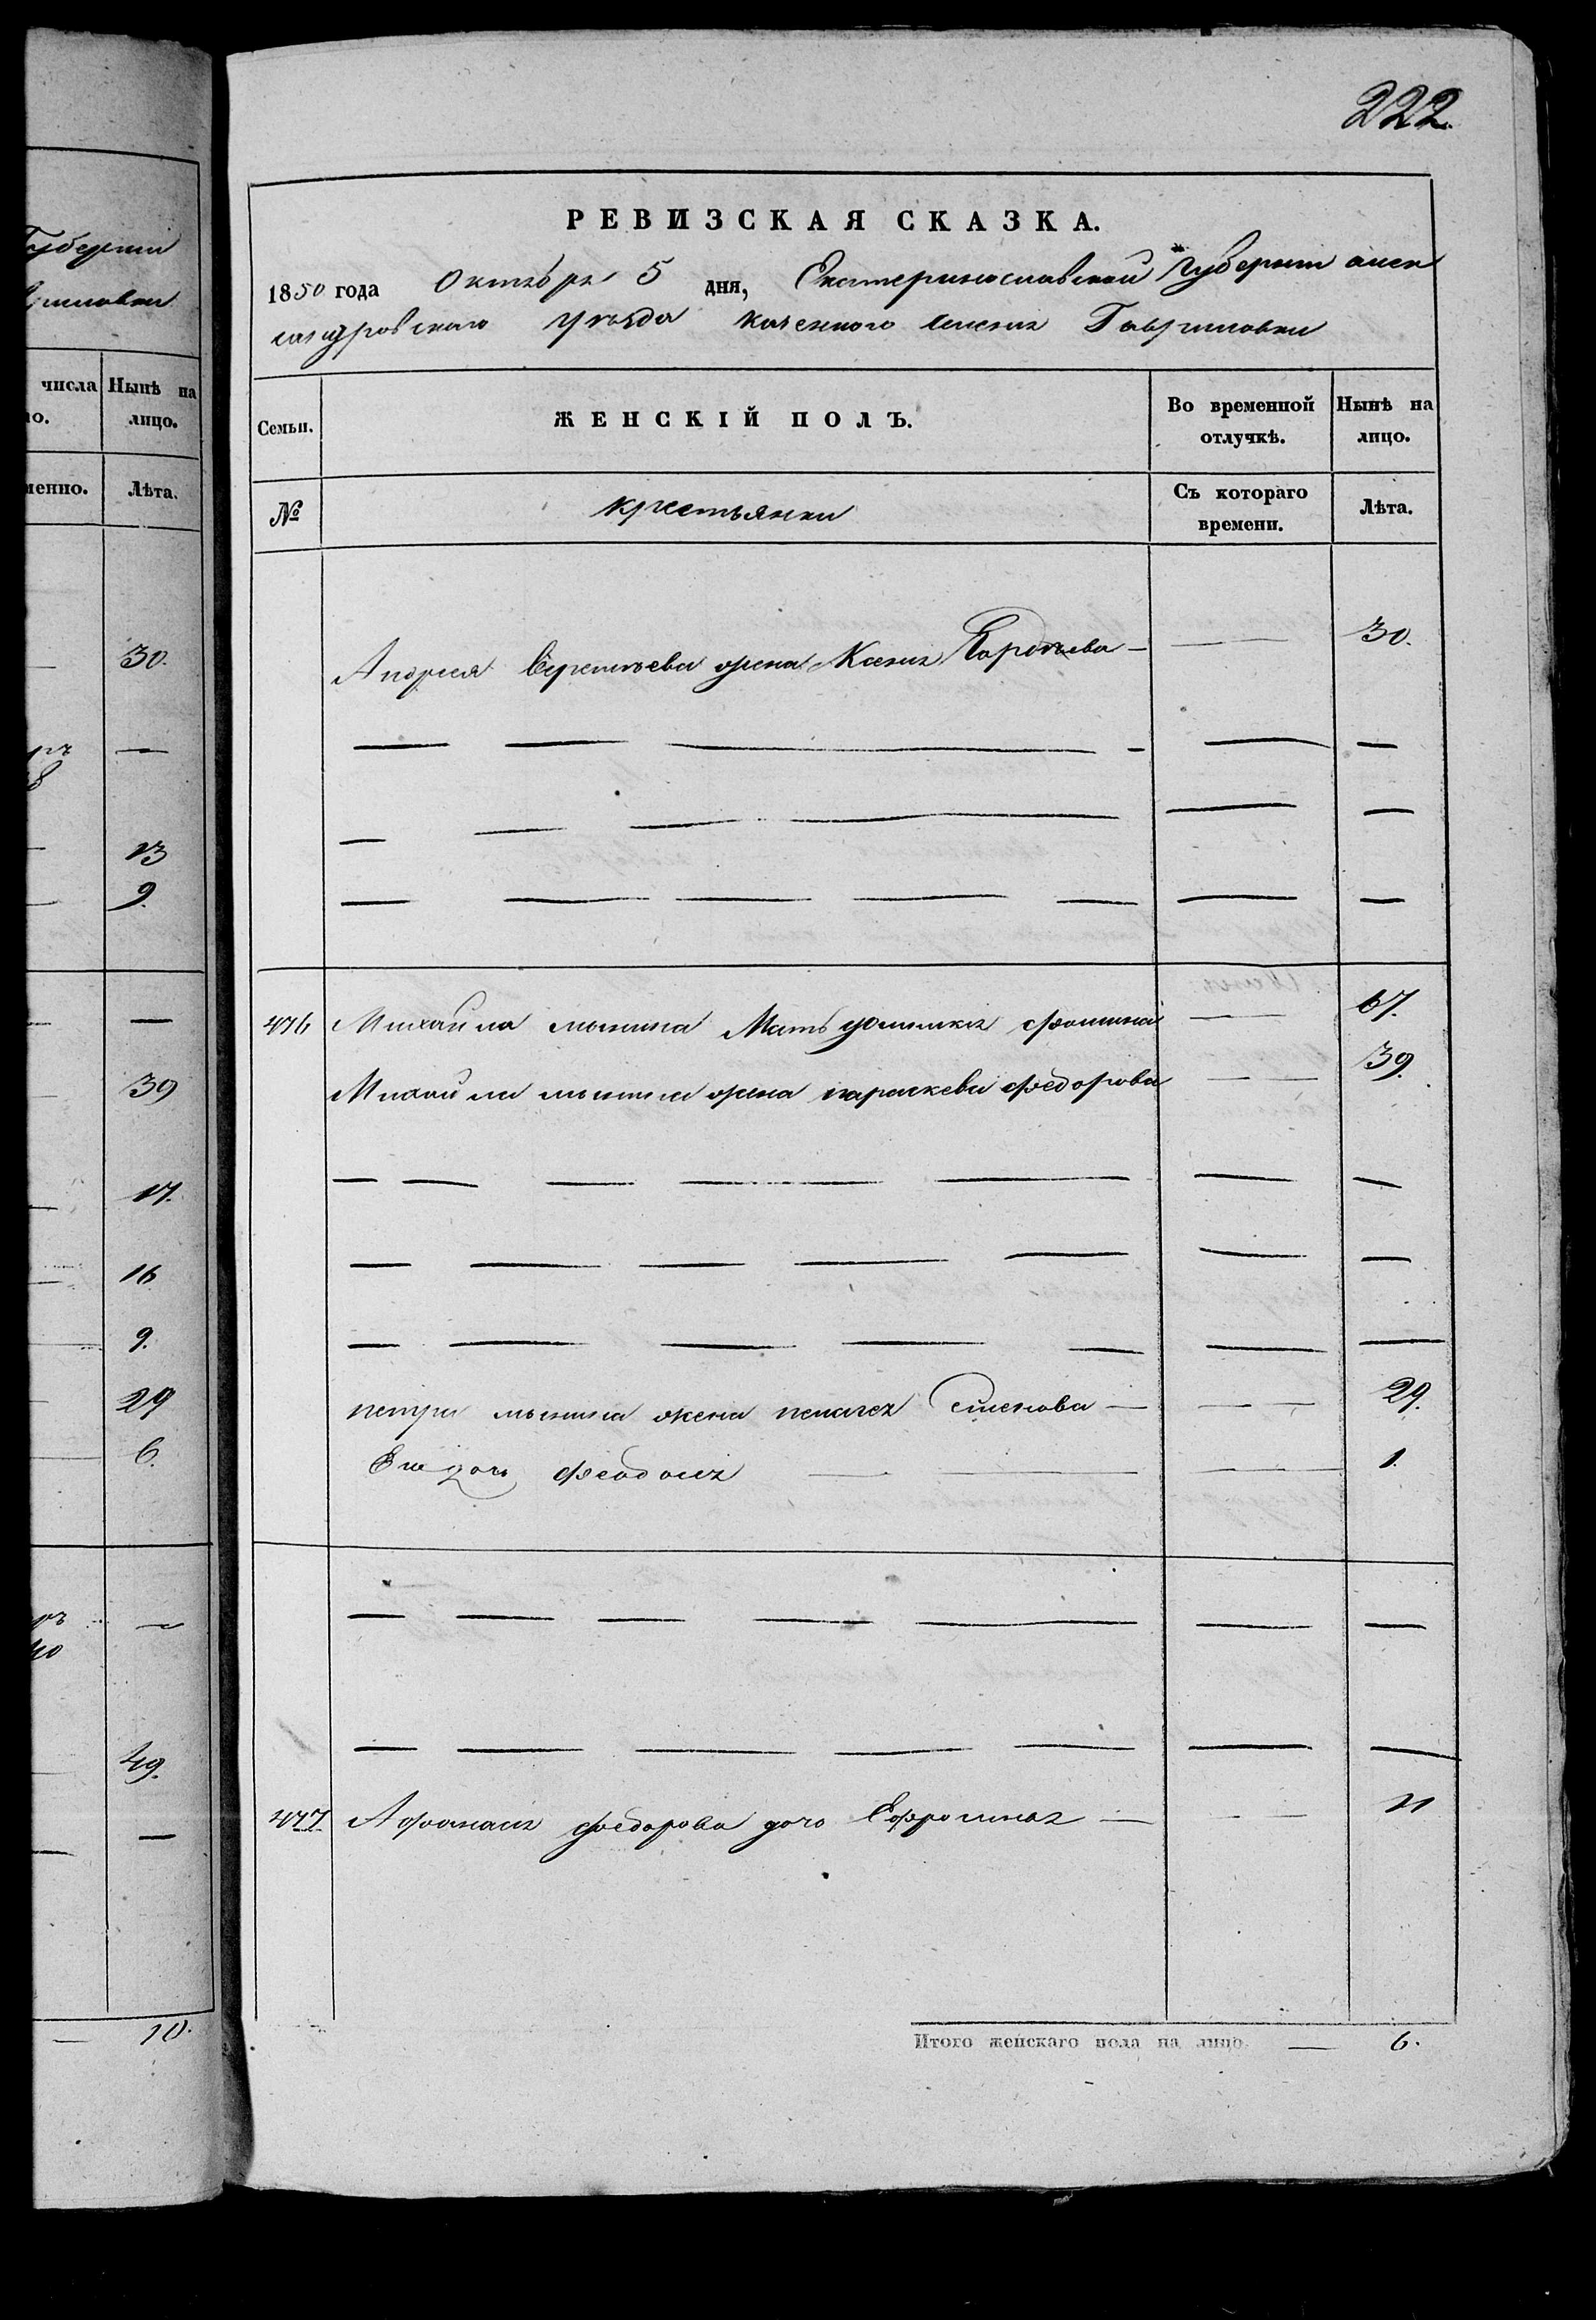 222.
РЕВИЗСКАЯ СКАЗКА.
1850 года Октября 5 дня, Екатеринославской Губернии алек
сандровского уѣзда казенного селенія Гавриловки
Семьи.
ЖЕНСКІЙ ПОЛЪ.
Во временной отлучкѣ.
Нынѣ на лицо.
№
крестьянки
Съ котораго времени.
Лѣта.
Андрея жена Ксенія — — 30.
476 Михайла мать Фомина — 67.
Михайла жена параскева Федорова — 39.
петра жена пелагея Семенова — — 29.
Его дочь Феодосія — — 1.
477 Афанасія Федорова дочь Ефросинья — — 11
Итого женскаго пола на лицо. — 6.
Губерніи
числа
Нынѣ на лицо.
Лѣта.
30.
—
13
9.
—
39
17.
16
9.
29
6.
—
49.
—
10.